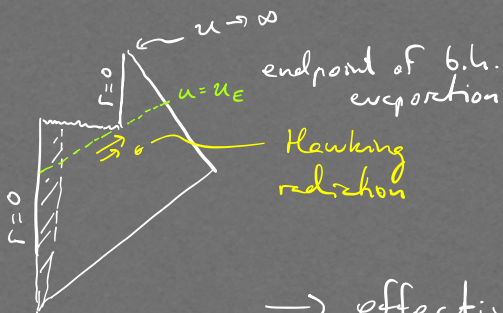 u → ∞
r=0
endpoint of b.h.
evaporation
u = u_E
Hawking
radiation
r=0
→ effecti